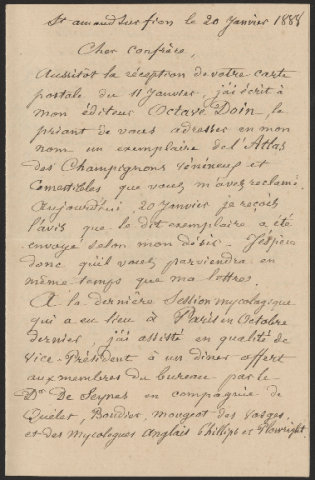 St amand sur fion le 20 Janvier 1888
Cher confrère,
Aussitôt la réception de votre carte
postale du 11 Janvier, j'ai écrit à
mon éditeur Octave Doin, le
priant de vous adresser en mon
nom un exemplaire de l'Atlas
des Champignons Vénéneux et
Comestibles que vous m'avez reclamé.
Aujourd'hui, 20 Janvier je reçois
l'avis que le dit exemplaire a été
envoyé selon mon désir - J'espère
donc qu'il vous parviendra en
même temps que ma lettre.
A la dernière Session mycologique
qui a eu lieu à Paris en Octobre
dernier, j'ai assisté en qualité de
Vice-Président à un diner offert
aux membres du bureau par le
Dr De Seynes en compagnie de
Quélet, Boudier, Mougeot des Vosges,
et des Mycologues Anglais Phillips et Plowright.